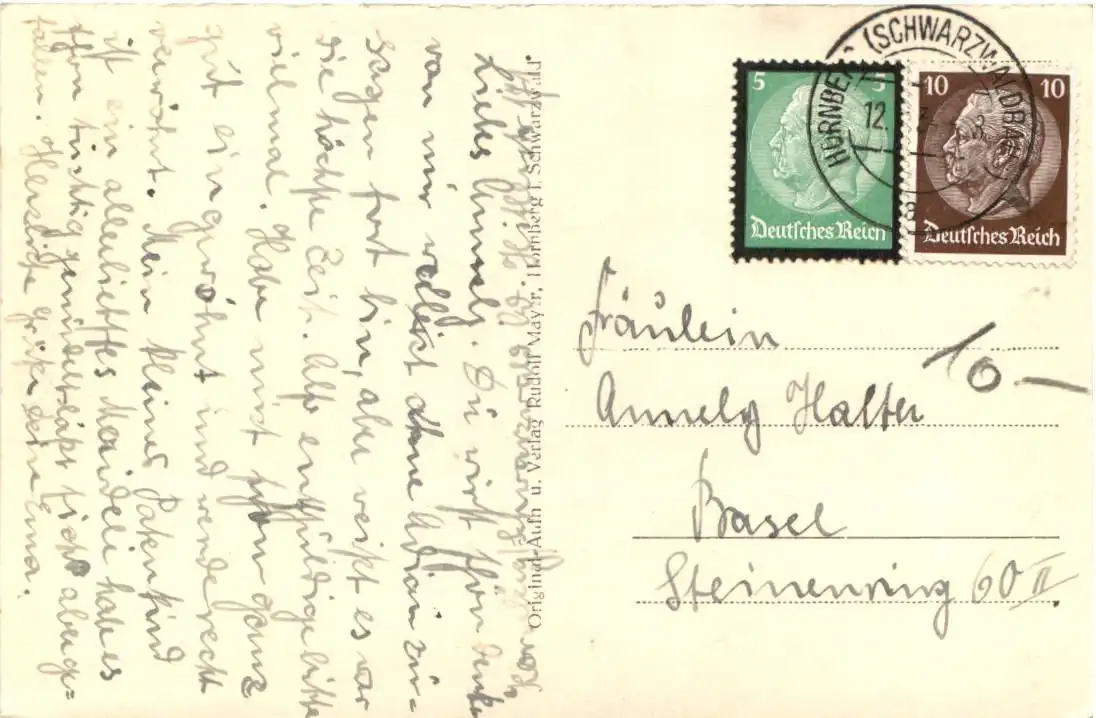 Liebs Annely. Du wirst schon denken
von mir ohne Adieu zu-
sagen fort bin, aber weißt es war
die höchste Zeit. Also entschuldige bitte
vielmal. Habe mich schon ganz
gut eingwöhnt und werde recht
verwöhnt. Mein kleines Patenkind
ist ein allerliebstes Maideli habe es
schon tüchtig läßt sich's aber ge-
fallen. Herzliche Grüße Deine Erna.
Original-Aufn. u. Verlag Rudolf Mayer, Hornberg i. Schwarzwald.
HORNBERG (SCHWARZWALDBAHN)
12.
5 5
Deutsches Reich
10 10
Deutsches Reich
Fräulein
10 —
Annely Halter
Basel
Steinenring 60 II